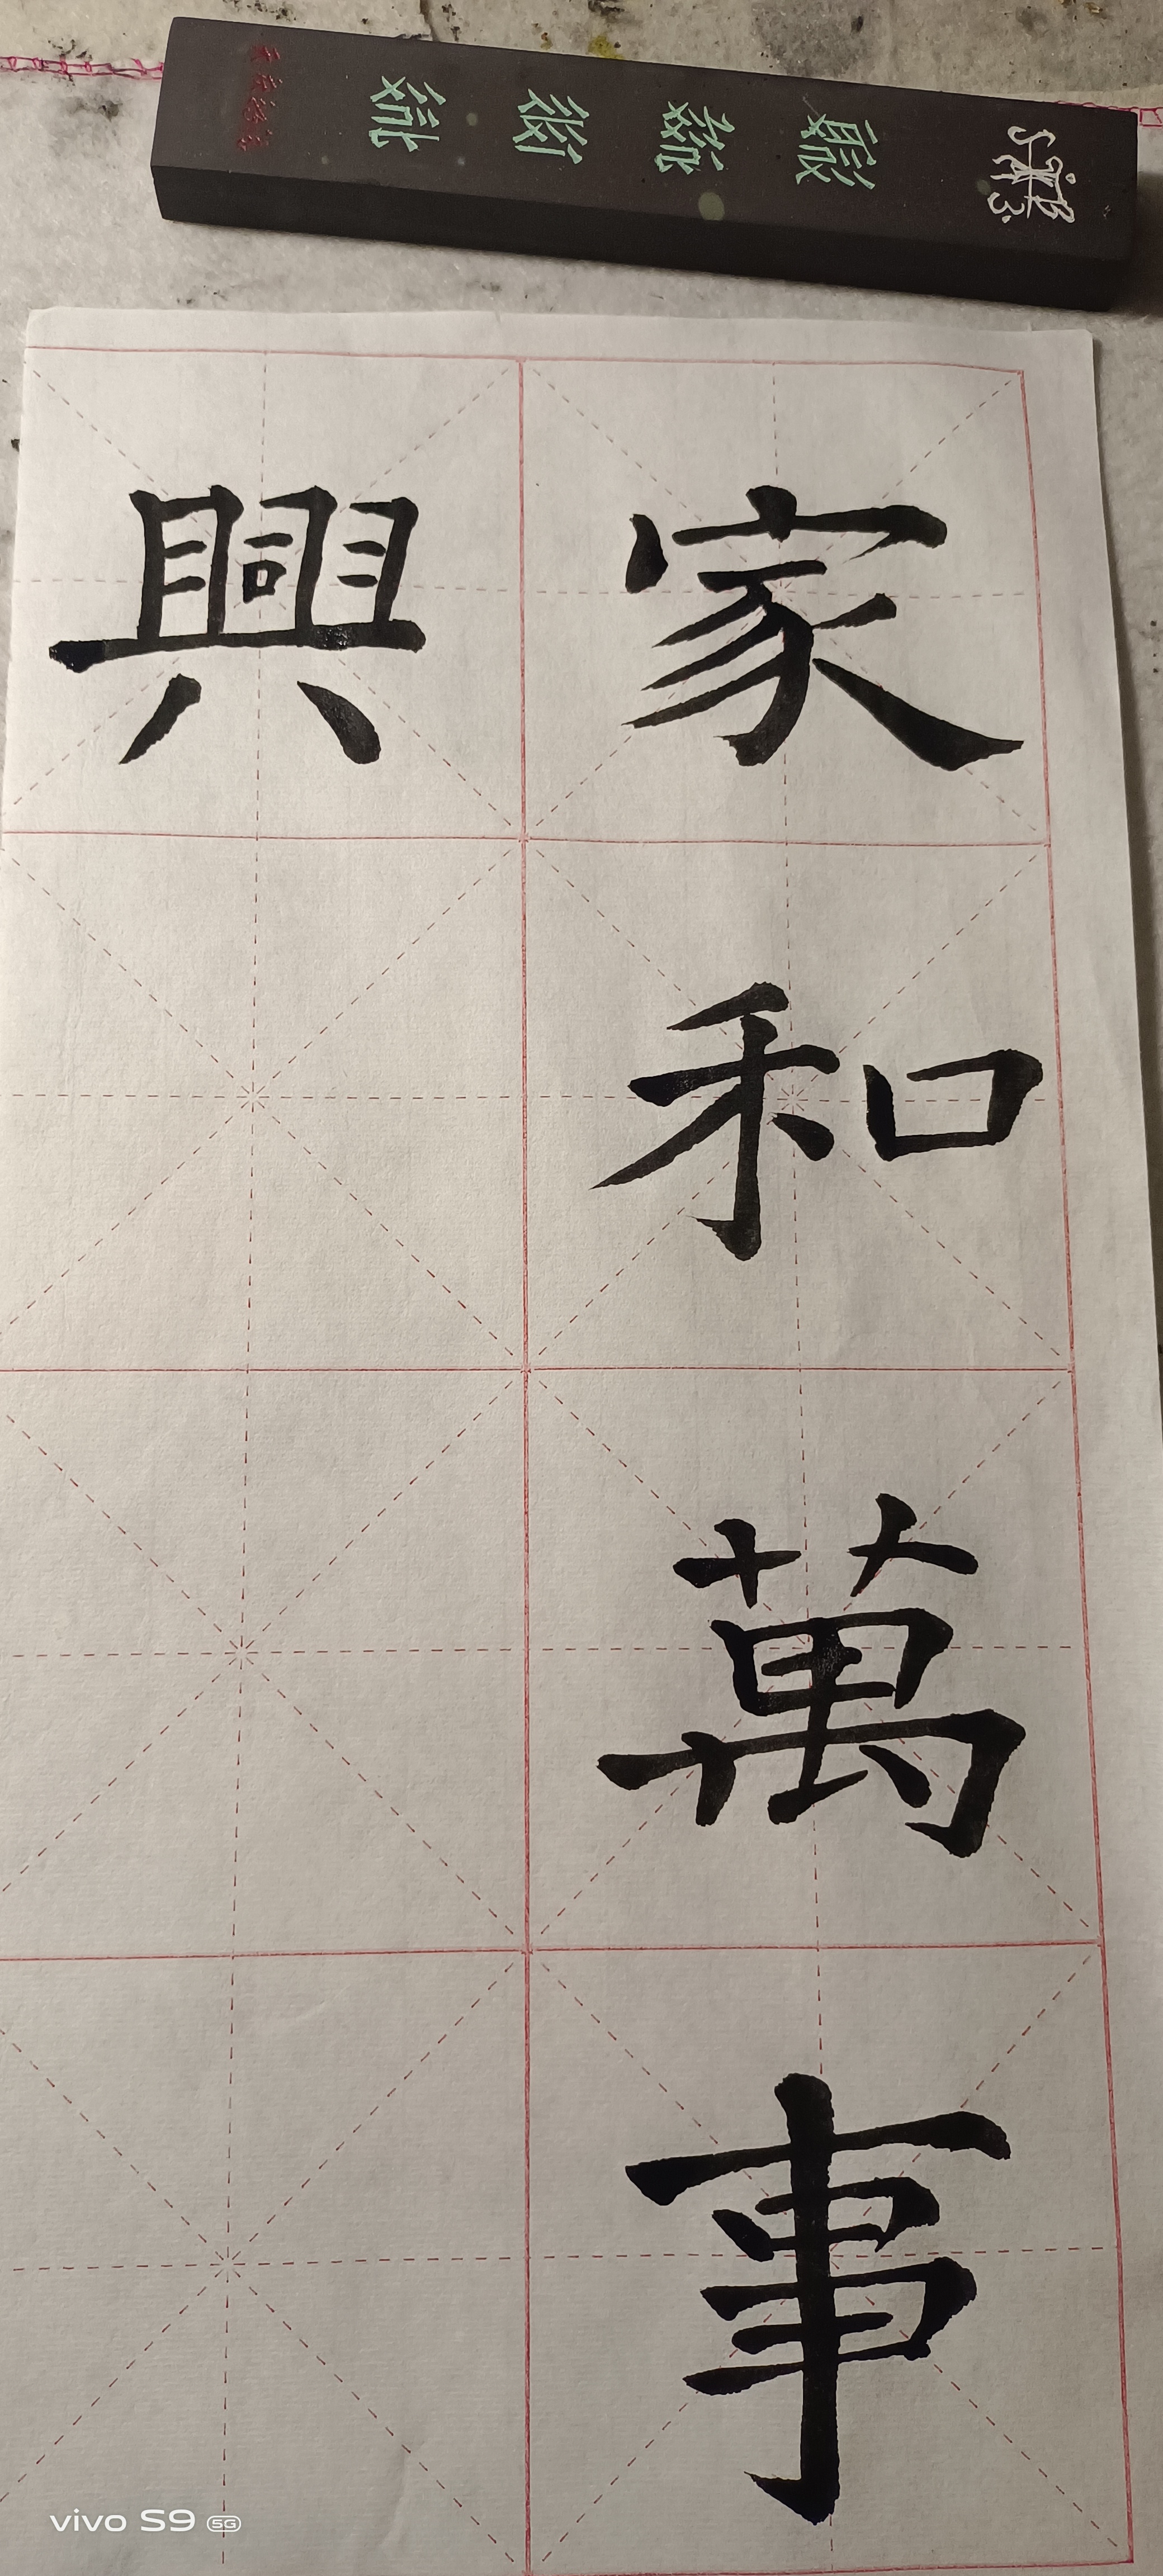 家和萬事
興
vivo S9 5G